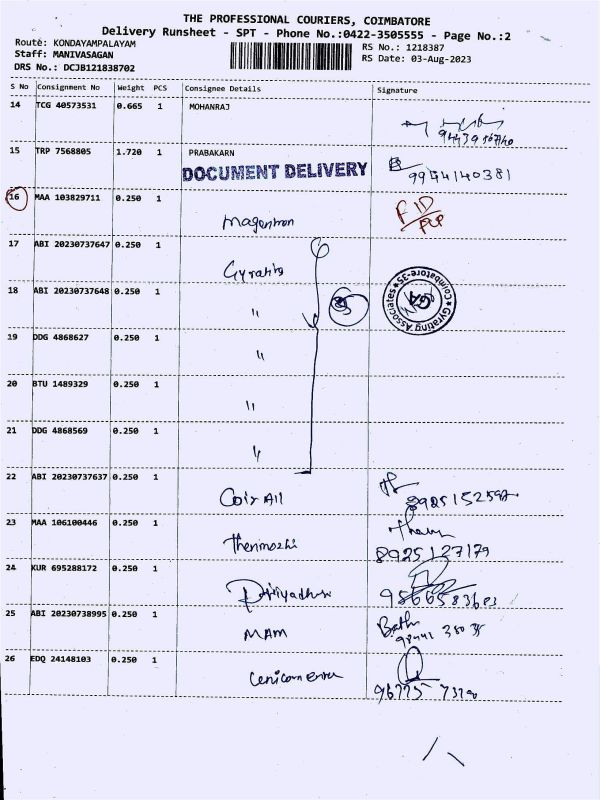 THE PROFESSIONAL COURIERS, COIMBATORE
Delivery Runsheet - SPT - Phone No.:0422-3505555 - Page No.:2
Route: KONDAYAMPALAYAM
Staff: MANIVASAGAN
DRS No.: DCJB121838702
RS No.: 1218387
RS Date: 03-Aug-2023
S No Consignment No Weight PCS Consignee Details Signature
14 TCG 40573531 0.665 1 MOHANRAJ
15 TRP 7568805 1.720 1 PRABAKARN
DOCUMENT DELIVERY
9944140381
16 MAA 103829711 0.250 1
17 ABI 20230737647 0.250 1
18 ABI 20230737648 0.250 1 "
Gyrating Associates Coimbatore-35
GA
19 DDG 4868627 0.250 1 "
20 BTU 1489329 0.250 1 "
21 DDG 4868569 0.250 1 "
22 ABI 20230737637 0.250 1 Coir All
23 MAA 106100446 0.250 1 Thenmozhi
8925127179
24 KUR 695288172 0.250 1
25 ABI 20230738995 0.250 1 MAM
26 EDQ 24148103 0.250 1